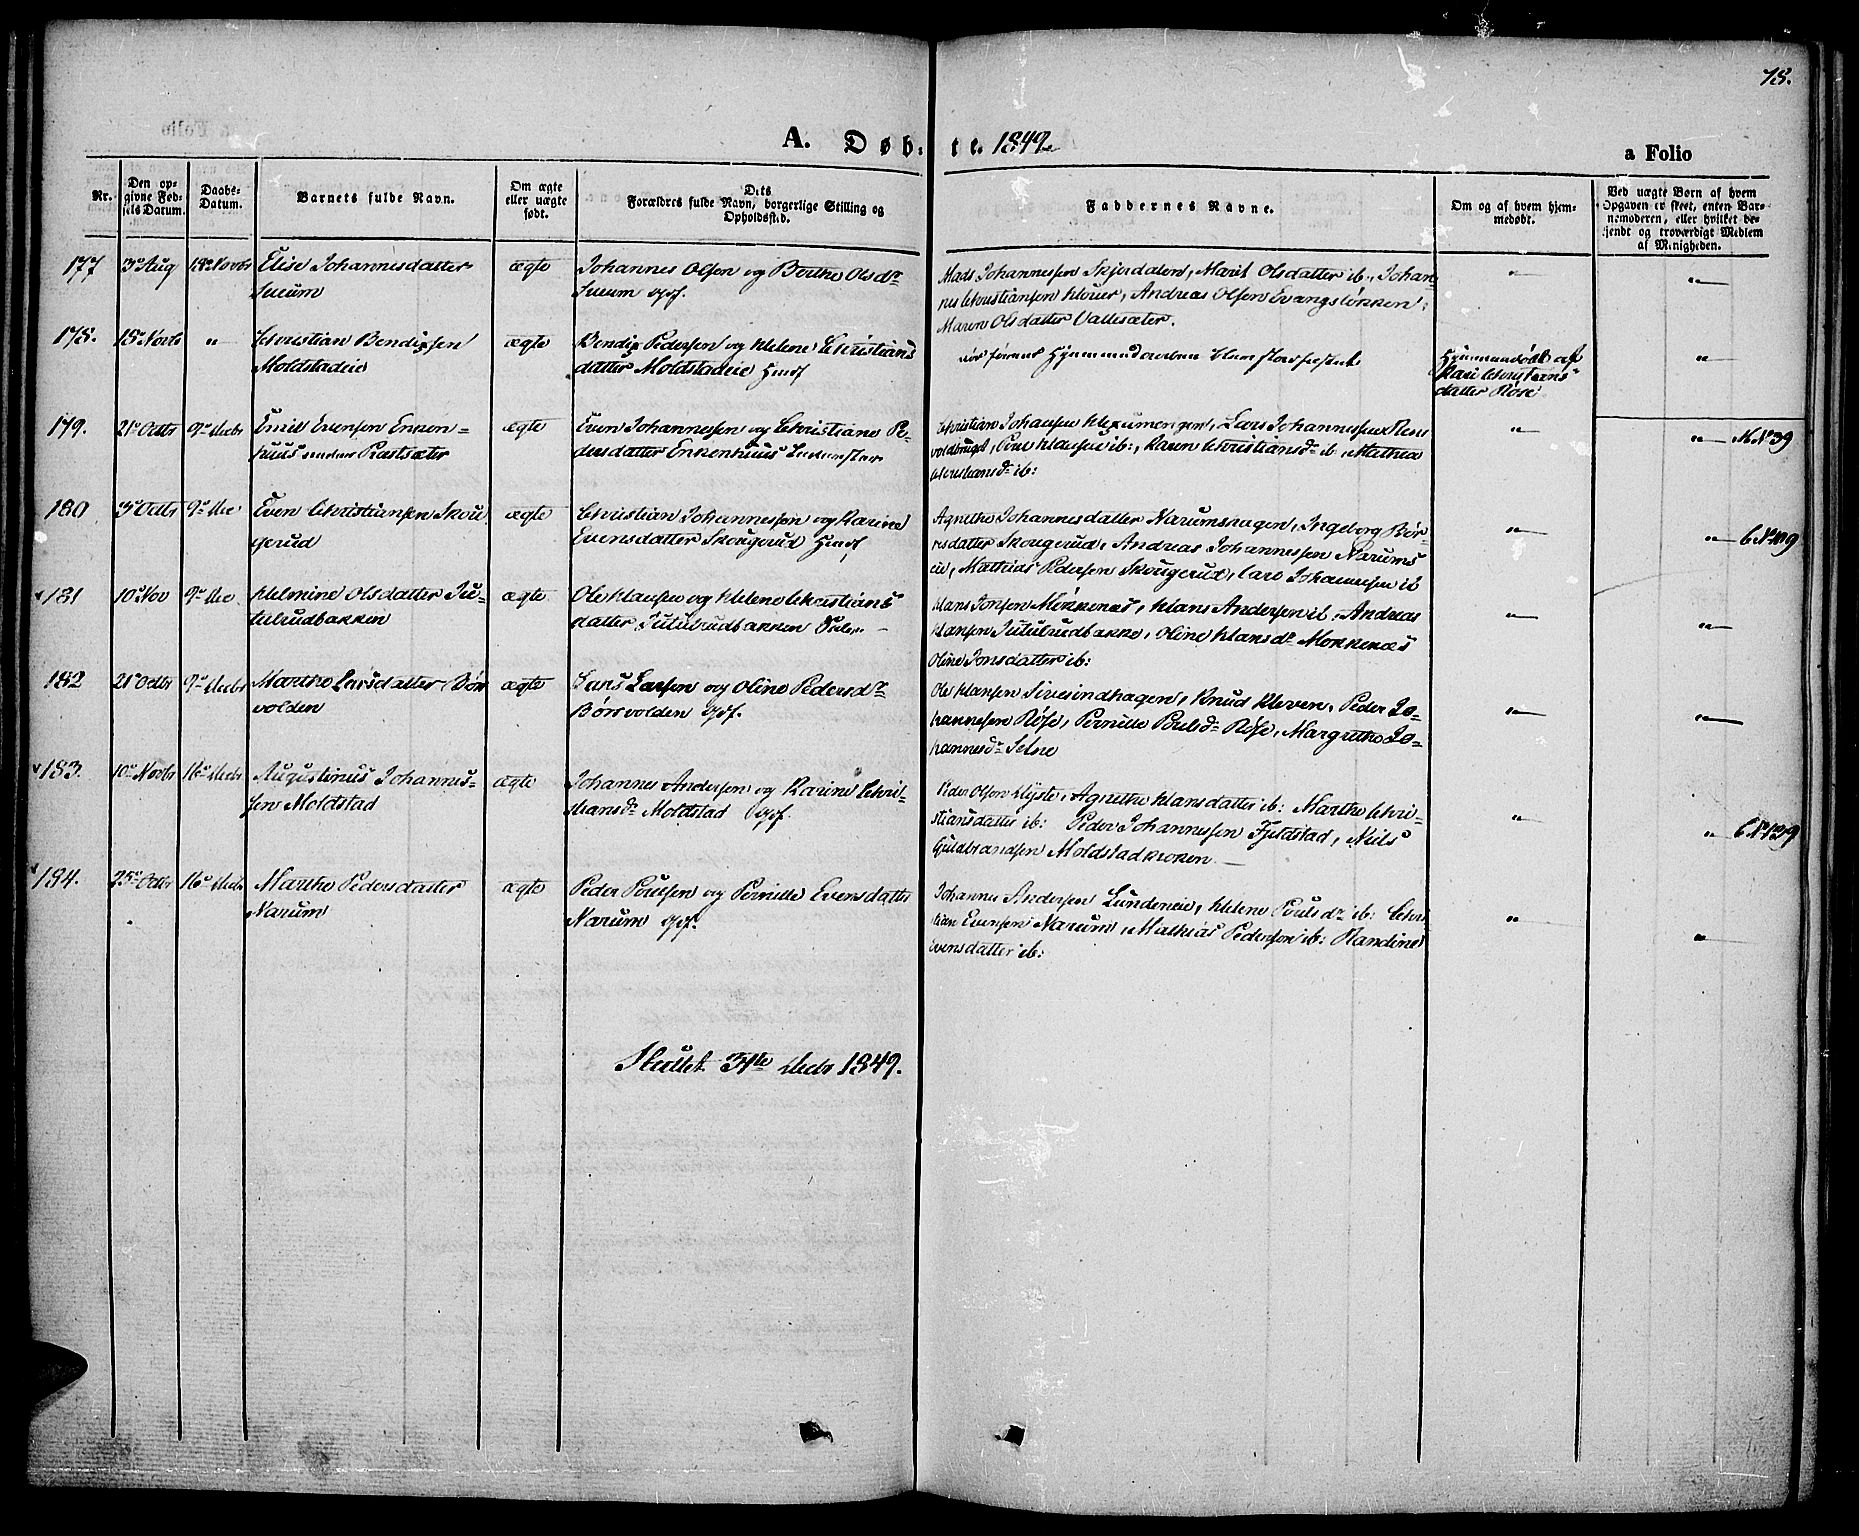 78.
A. Døbte. 1849
a Folio
Nr.
Den opgivne Fødselsdatum.
Daabs-Datum.
Barnets fulde Navn.
Om ægte eller uægte født.
Dets Forældres fulde Navn, borgerlige Stilling og Opholdssted.
Faddernes Navne.
Om og af hvem hjemmedøbt.
Ved uægte Børn af hvem Opgaven er skeet, enten Barnemoderen, eller hvilket bekjendt og troværdigt Medlem af Menigheden.
177 3 Aug 18 Novbr Elise Johannesdatter ægte Johannes Olsen og Berthe Olsdr
Mads Johannessen Skjerdalen, Marit Olsdatter ib., Johan-
nes Christiansen Klever, Andreas Olsen Evangsløkken
Maren Olsdatter Vallesæter.
178. 18 Novb " Christian Bendixsen ægte Bendix Pedersen og Helene Christians
Moldstadeie datter Moldstadeie Huusf
Hjemmedøbt af
Kari Christians
datter Røse
179. 21 Octbr 9 Decbr Emil Evensen Enken= ægte Even Johannessen og Christiane Pe-
huus Præstsæter dersdatter Enkenhuus
Christian Johansen Lars Johannessen
ib:, Karen Christiansdr ib, Mathea
Christiansdr ib:
180 3 Octbr 9 Dec Even Christiansen Skou ægte Christian Johannessen og Karine
gerud Evensdatter Skougerud Huusf
Agnethe Johannesdatter Narumshagen, Ingeborg Bør-
resdatter Skougerud, Andreas Johannessen Narums
eie, Mathias Pedersen Skougerud, Lars Johannessen ib
181 10 Nov 9 Dec Helmine Olsdatter Ju= ægte Ole Hansen og Helene Christians
tulrudbakken datter Jutulrudbakken
Hans Jonsen Mokkenæs, Hans Andersen ib, Andreas
Hansen Jutulrudbakke, Oline Hansdr Mokkenæs
Oline Jonsdatter ib:
182 21 Octbr 9 Decbr Marthe Larsdatter Børs ægte Lars Larsen og Oline Pedersdr
volden Børsvolden Gjf.
Ole Hansen Sivesindhagen, Knud Kleven, Peder Jo=
hannesen Røse, Pernille Poulsdr Røse, Margrethe Jo=
hannesdr Selne
183. 10 Novbr 16 Decbr Augustinus Johannes= ægte Johannes Andersen og Karine Chri=
sen Moldstad stiansdr Moldstad Gjf.
Peder Olsen Hyste, Agnethe Hansdatter ib: Marthe Chri=
stiansdatter ib: Peder Johannessen Fjeldstad, Niels
Guldbrandsen Moldstadkroken
184. 25 Octbr 16 Decbr Marthe Pedersdatter ægte Peder Poulsen og Pernille Evensdatter
Narum Narum Gjf.
Johannes Andersen Lundeneie, Helene Poulsdr ib: Chris
tian Evensen Narum, Mathias Pedersen ib: Randine
Evensdatter ib:
Sluttet 31te Decbr 1849.